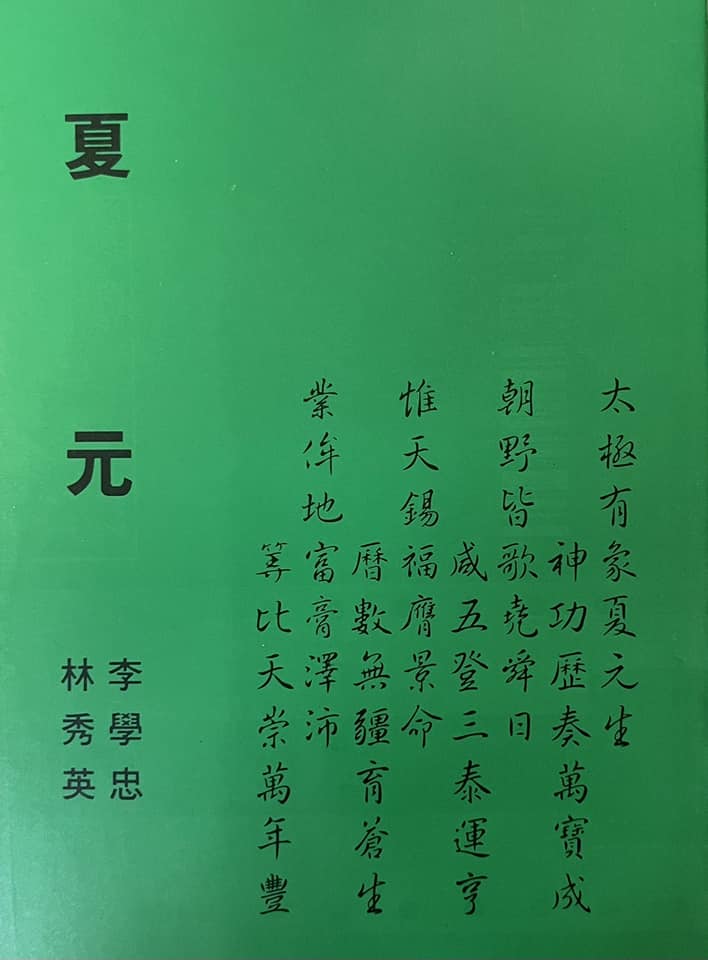 太極有象夏元生
神功歷奏萬寶成
朝野皆歌堯舜日
咸五登三泰運亨
惟天錫福膺景命
曆數無疆育蒼生
業侔地富膏澤沛
等比天崇萬年豐
夏元
李學忠
林秀英